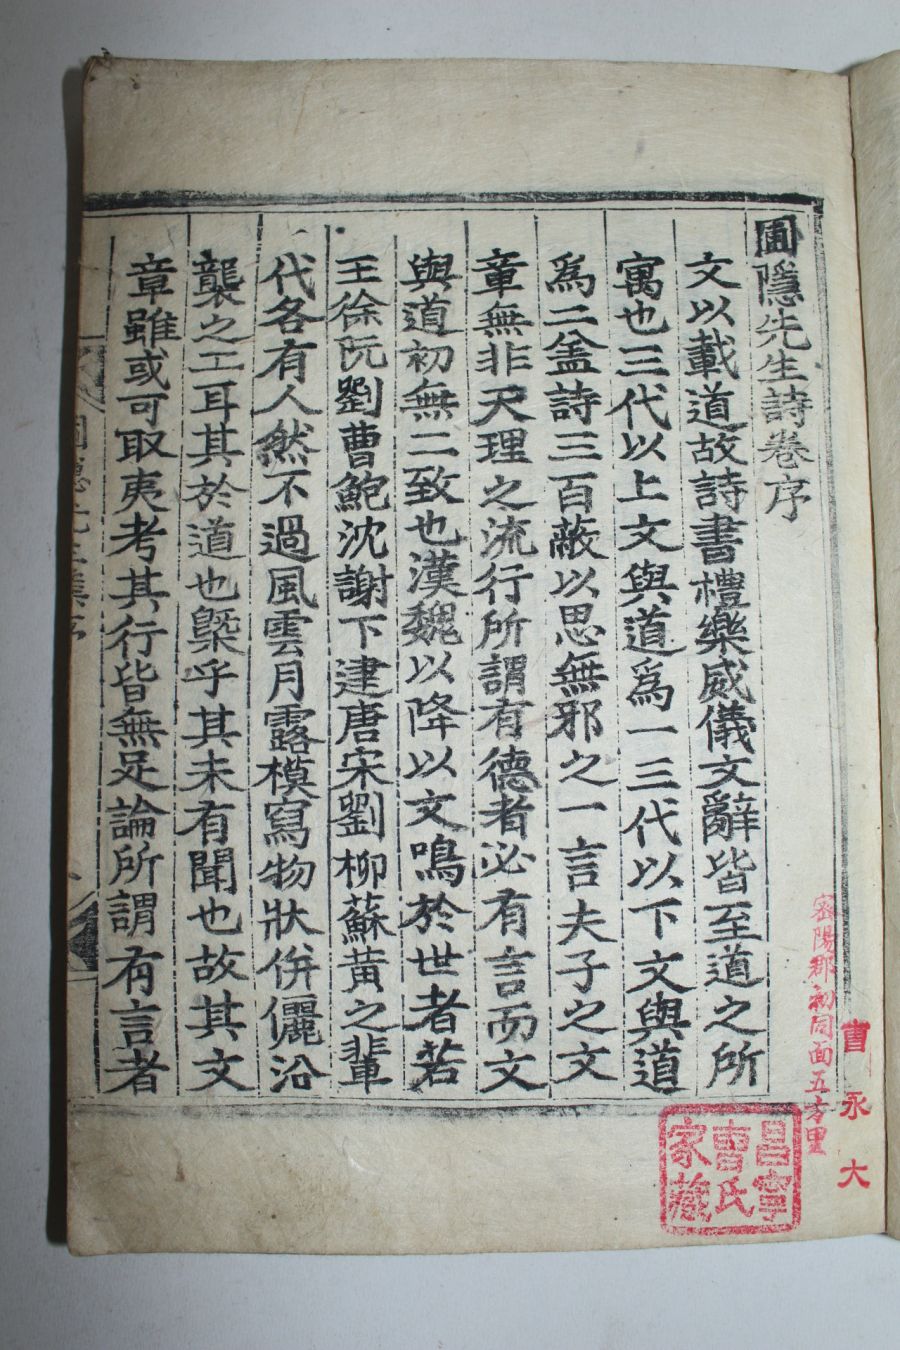 圃隱先生詩卷序
文以載道故詩書禮樂威儀文辭皆至道之所
寓也三代以上文與道爲一三代以下文與道
爲二盖詩三百蔽以思無邪之一言夫子之文
章無非天理之流行所謂有德者必有言而文
與道初無二致也漢魏以降以文鳴於世者若
王徐阮劉曹鮑沈謝下逮唐宋劉柳蘇黃之輩
代各有人然不過風雲月露模寫物狀倂儷沿
襲之工耳其於道也槩乎其未有聞也故其文
章雖或可取夷考其行皆無足論所謂有言者
密陽郡初同面五方里
曹永大
昌寧
曹氏
家藏